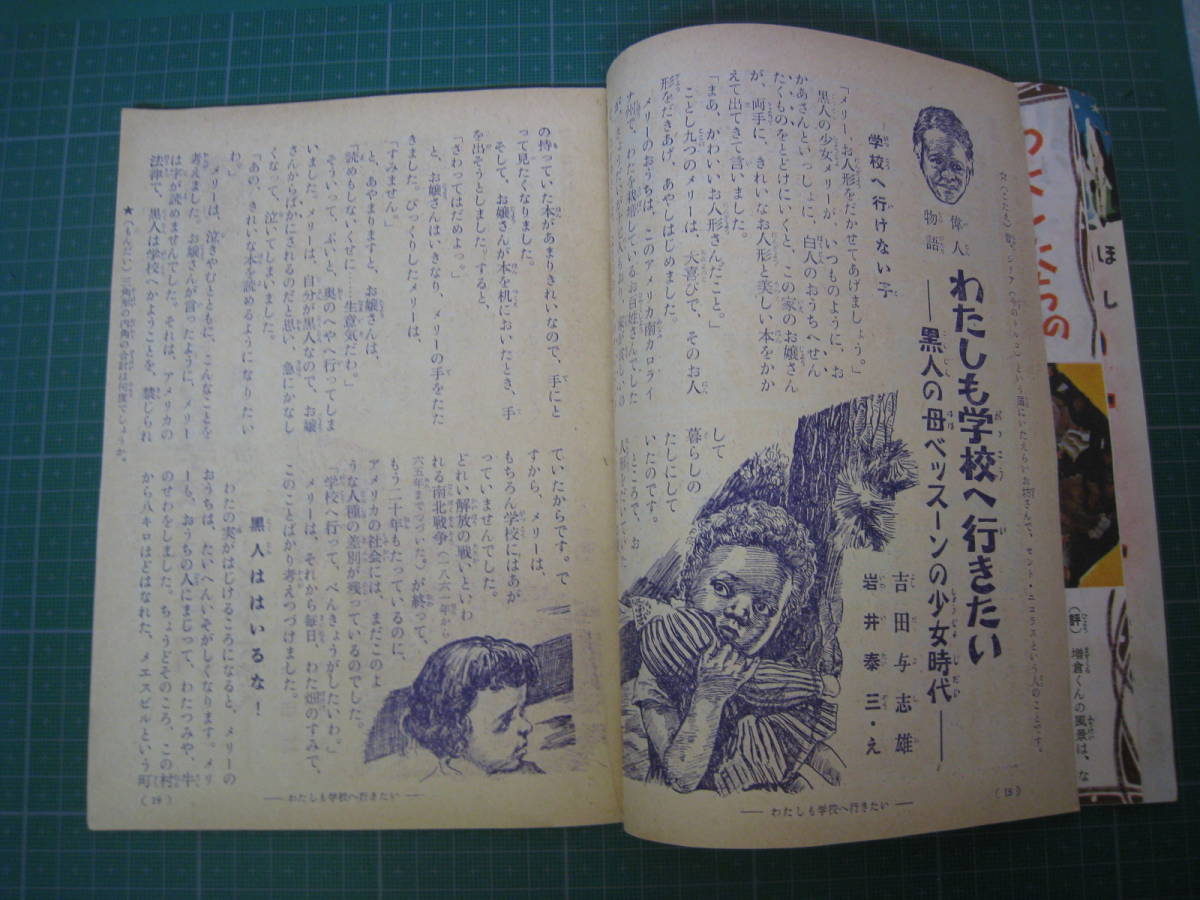 偉人
物語
わたしも学校へ行きたい
―黒人の母ベッスーンの少女時代―
吉田与志雄
岩井泰三・え
学校へ行けない子
「メリー、お人形をだかせてあげましょう。」
黒人の少女メリーが、いつものように、お
かあさんといっしょに、白人のおうちへせん
たくものをとどけにいくと、この家のお嬢さん
が、両手に、きれいなお人形と美しい本をかか
えて出てきて言いました。
「まあ、かわいいお人形さんだこと。」
ことし九つのメリーは、大喜びで、そのお人
形をだきあげ、あやしはじめました。
メリーのおうちは、このアメリカ南カロライ
ナ州で、わたを栽培しているお百姓さんでした
して
暮らしの
たしにして
いたのです。
ところで、お
―わたしも学校へ行きたい―
(18)
の持っていた本があまりきれいなので、手にと
って見たくなりました。
そして、お嬢さんが本を机においたとき、手
を出そうとしました。すると、
「さわってはだめよっ。」
と、お嬢さんはいきなり、メリーの手をたた
きました。びっくりしたメリーは、
「すみません。」
と、あやまりますと、お嬢さんは、
「読めもしないくせに……生意気だわ。」
そういって、ぷいと、奥のへやへ行ってしま
いました。メリーは、自分が黒人なので、お嬢
さんからばかにされるのだと思い、急にかなし
くなって、泣いてしまいました。
「あの、きれいな本を読めるようになりたい
わ。」
メリーは、泣きやむとともに、こんなことを
考えました。お嬢さんが言ったように、メリー
は字が読めませんでした。それは、アメリカの
法律で、黒人は学校へかようことを、禁じられ
★(もんだい) 三角形の内角の合計は何度でしょうか。
ていたからです。で
すから、メリーは、
もちろん学校にはあが
っていませんでした。
どれい解放の戦いといわ
れる南北戦争(一八六一年から
六五年までつづいた。)が終って、
もう二十年もたっているのに、
アメリカの社会には、まだこのよ
うな人種の差別が残っているのでした。
「学校へ行って、べんきょうがしたいわ。」
メリーは、それから毎日、わた畑のすみで、
このことばかり考えつづけました。
黒人ははいるな！
わたの実がはじけるころになると、メリーの
おうちは、たいへんいそがしくなります。メリ
ーも、おうちの人にまじって、わたつみや、牛
のせわをしました。ちょうどそのころ、この村
から八キロほどはなれた、メエスビルという町
―わたしも学校へ行きたい―
(19)
ほし
(評)
増倉くんの風景は、な